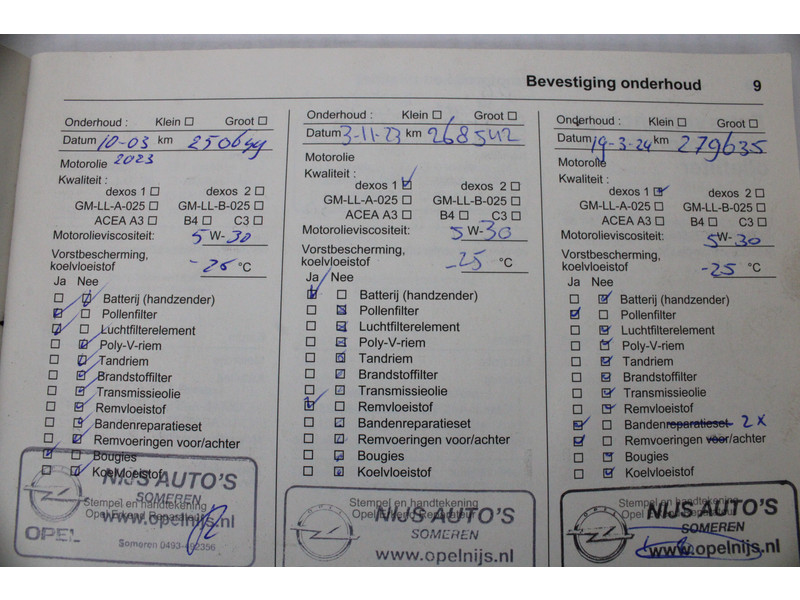 Bevestiging onderhoud 9
Onderhoud : Klein Groot
Datum 10-03 km
2023
Motorolie
Kwaliteit :
dexos 1 dexos 2
GM-LL-A-025 GM-LL-B-025
ACEA A3 B4 C3
Motorolieviscositeit: 5 W-30
Vorstbescherming,
koelvloeistof -26 °C
Ja Nee
Batterij (handzender)
Pollenfilter
Luchtfilterelement
Poly-V-riem
Tandriem
Brandstoffilter
Transmissieolie
Remvloeistof
Bandenreparatieset
Remvoeringen voor/achter
Bougies
Koelvloeistof
Stempel en handtekening
Opel Erkend Reparateur
NIJS AUTO'S
SOMEREN
www.opelnijs.nl
OPEL
Someren 0493-492356
Onderhoud : Klein Groot
Datum 3-11-23 km 268542
Motorolie
Kwaliteit :
dexos 1 dexos 2
GM-LL-A-025 GM-LL-B-025
ACEA A3 B4 C3
Motorolieviscositeit: 5 W-30
Vorstbescherming,
koelvloeistof -25 °C
Ja Nee
Batterij (handzender)
Pollenfilter
Luchtfilterelement
Poly-V-riem
Tandriem
Brandstoffilter
Transmissieolie
Remvloeistof
Bandenreparatieset
Remvoeringen voor/achter
Bougies
Koelvloeistof
Stempel en handtekening
Opel Erkend Reparateur
NIJS AUTO'S
SOMEREN
www.opelnijs.nl
Onderhoud : Klein Groot
Datum 19-3-24 km 279635
Motorolie
Kwaliteit :
dexos 1 dexos 2
GM-LL-A-025 GM-LL-B-025
ACEA A3 B4 C3
Motorolieviscositeit: 5 W-30
Vorstbescherming,
koelvloeistof -25 °C
Ja Nee
Batterij (handzender)
Pollenfilter
Luchtfilterelement
Poly-V-riem
Tandriem
Brandstoffilter
Transmissieolie
Remvloeistof
Bandenreparatieset 2x
Remvoeringen voor/achter
Bougies
Koelvloeistof
Stempel en handtekening
NIJS AUTO'S
SOMEREN
www.opelnijs.nl